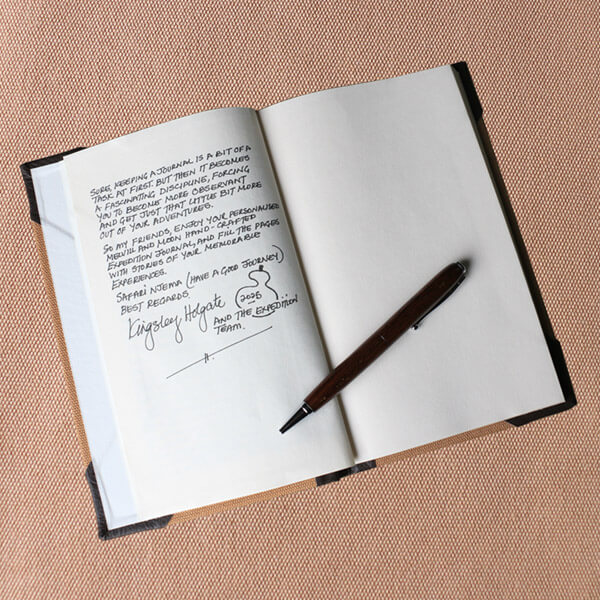 SURE, KEEPING A JOURNAL IS A BIT OF A
TASK AT FIRST. BUT THEN IT BECOMES
A FASCINATING DISCIPLINE, FORCING
YOU TO BECOME MORE OBSERVANT
AND GET JUST THAT LITTLE BIT MORE
OUT OF YOUR ADVENTURES.
SO MY FRIENDS, ENJOY YOUR PERSONALISED
MELVILL AND MOON HAND-CRAFTED
EXPEDITION JOURNAL, AND FILL THE PAGES
WITH STORIES OF YOUR MEMORABLE
EXPERIENCES.
SAFARI NJEMA (HAVE A GOOD JOURNEY)
BEST REGARDS.
Kingsley Holgate
AND THE EXPEDITION
TEAM.